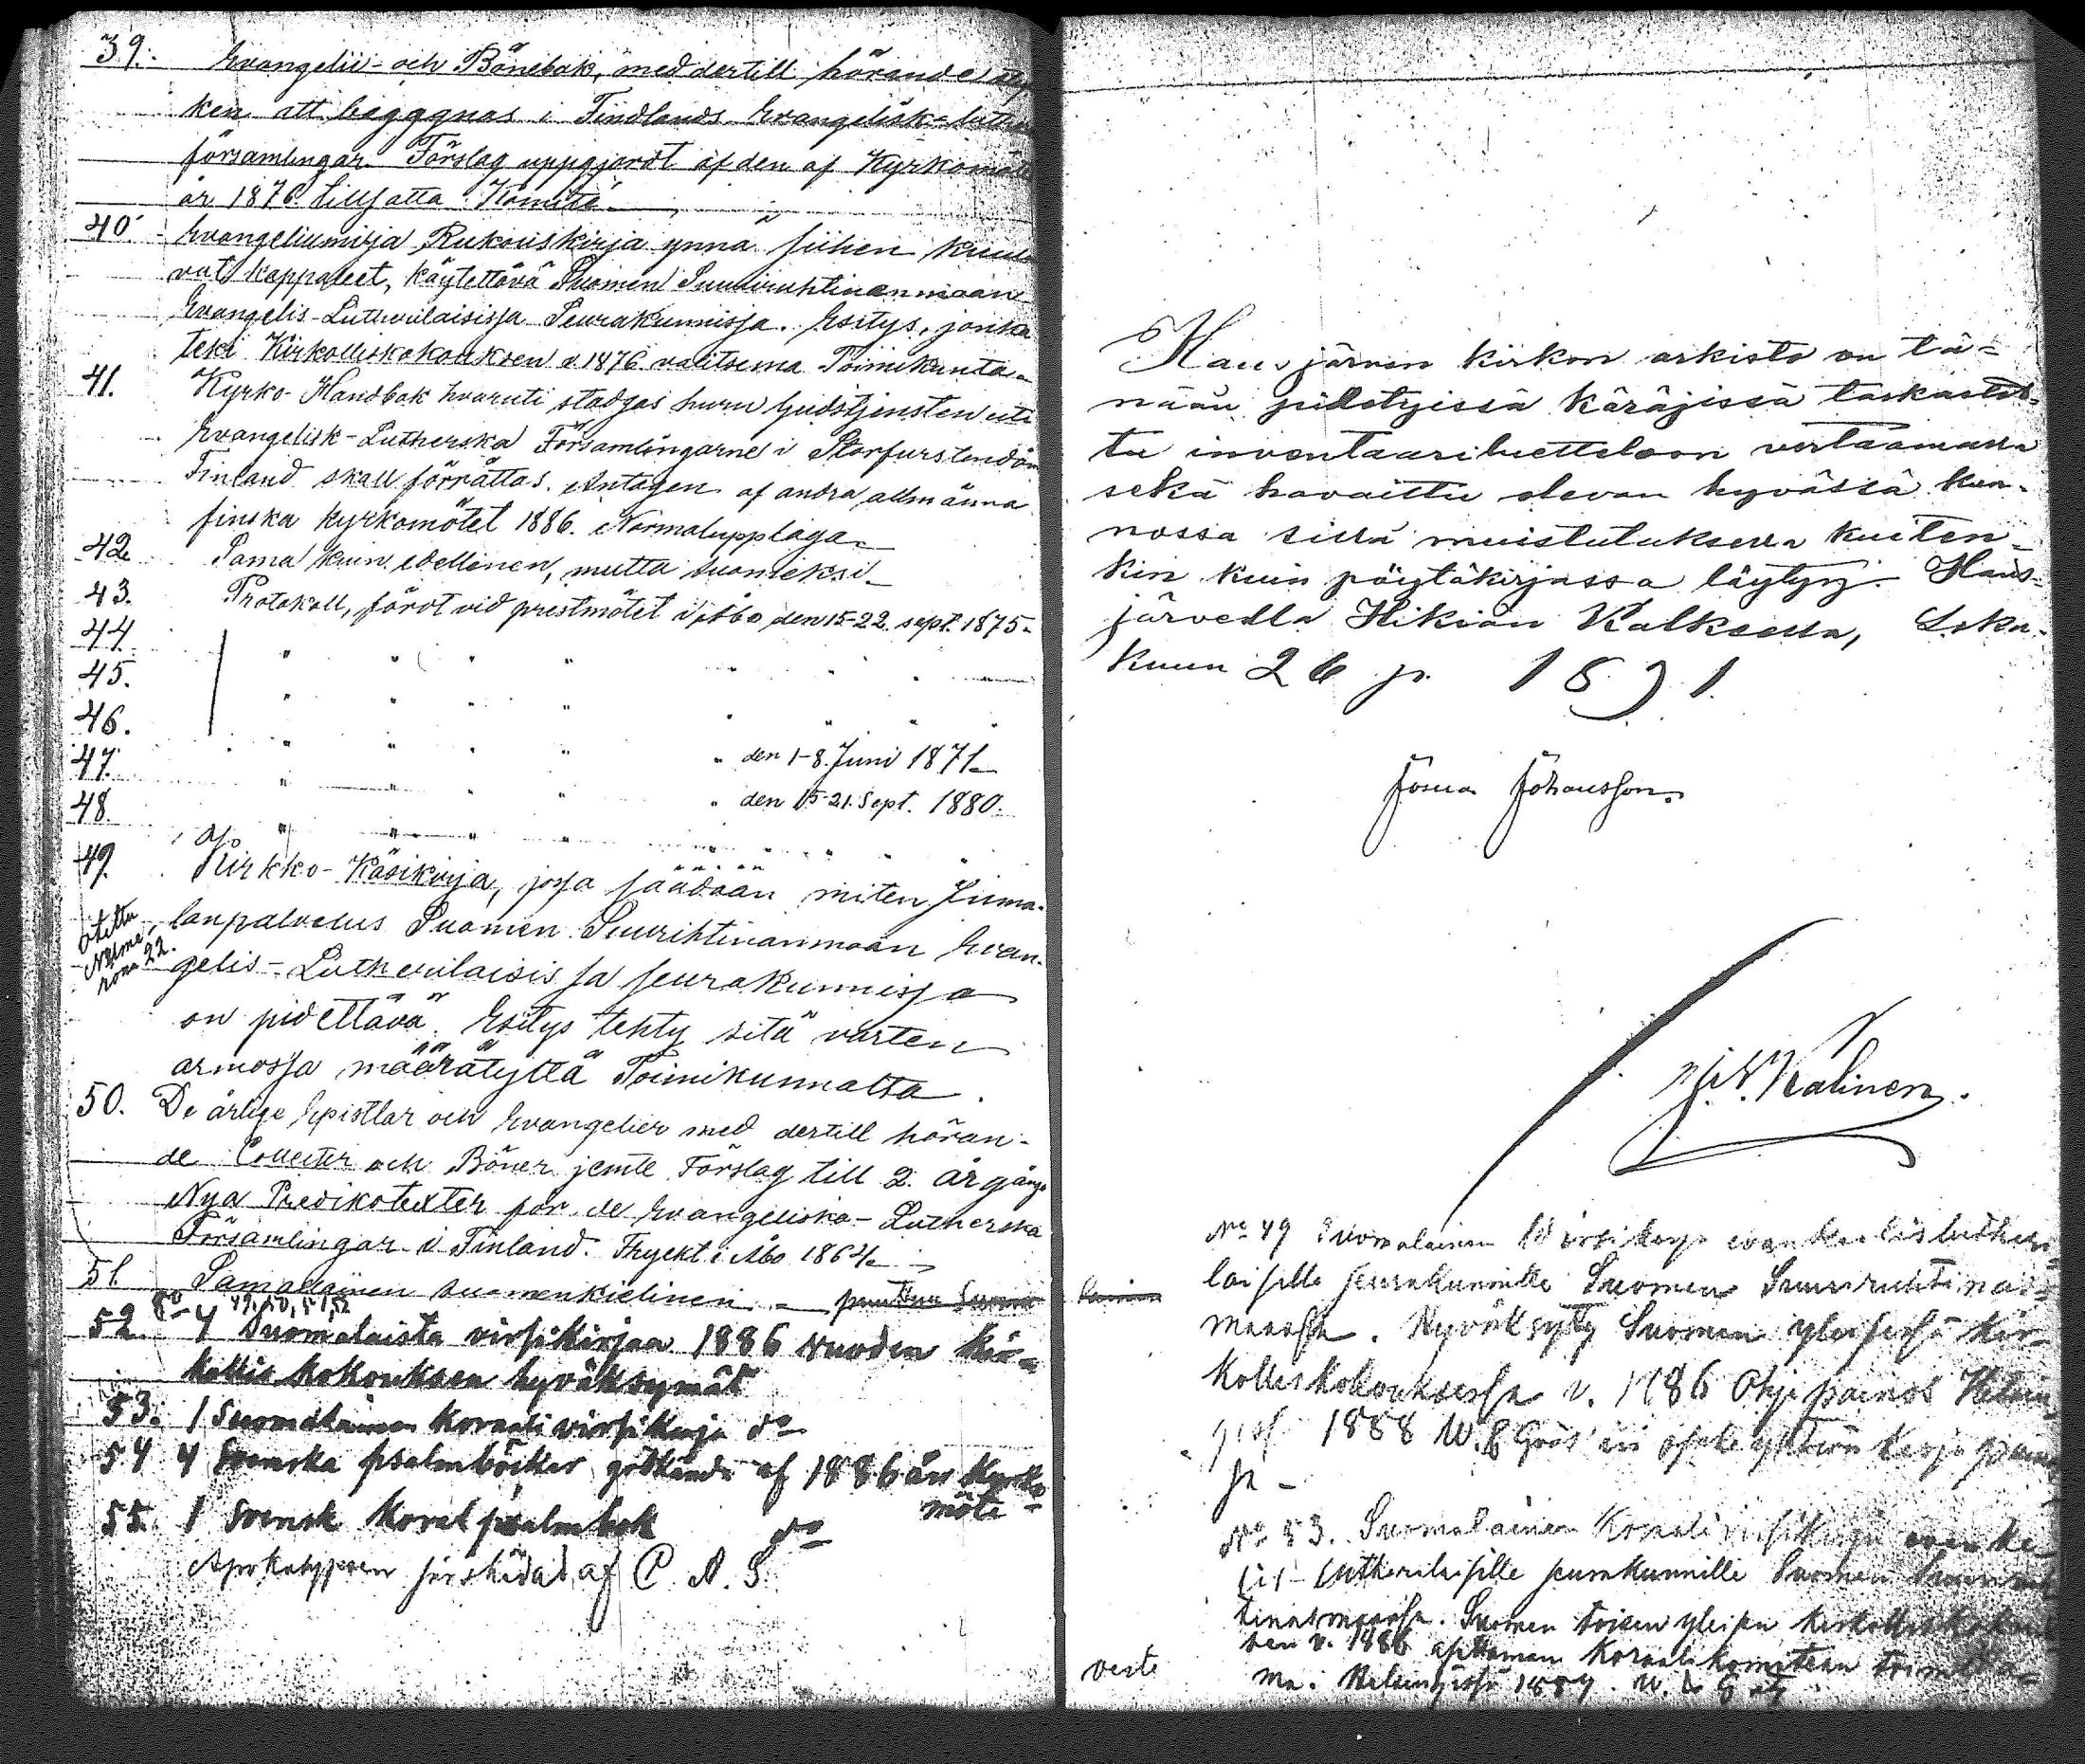 39. Evangelii- och Bönebok, med dertill hörande
ken att begagnas i Findlands Evangelisk-luthe
församlingar. Förslag uppgjordt af den af Kyrkomöte
år 1876 tillsatta Komité.
40. Evangeliumirja Rukouskirja ynnä siihen kuulu
vat kappaleet, käytettävä Suomen Suuriruhtinanmaan
Evangelis-Lutherilaisissa Seurakunnissa. Esitys, jonka
teki Kirkolliskokouksen v. 1876 valitsema Toimikunta.
41. Kyrko-Handbok hvaruti stadgas huru Gudstjensten uti
Evangelisk-Lutherska Församlingarne i Storfurstendöm
Finland skall förrättas. Antagen af andra allmänna
finska kyrkomötet 1886. Normalupplaga.
42. Sama kuin edellinen, mutta suomeksi.
43. Protokoll, fördt vid prestmötet i Åbo den 15-22. sept. 1875.
44. " " " " " " "
45. " " " " " " " "
46. " " " " " den 1-8. Juni 1871.
47. " " " " " den 15-21. Sept. 1880.
48. " " " " " " " "
49. Kirkko-Käsikirja, jossa säädään miten Juma-
lanpalvelus Suomen Suurihtinanmaan Evan-
otettu
gelis-Lutherilaisissa seurakunnissa
22.
on pidettävä. Esitys tehty sitä varten
armossa määrätyltä Toimikunnalta.
50. De årlige Epistlar och Evangelier med dertill höran-
de Collecter och Böner jemte Förslag till 2. årgångr
Nya Predikotexter för de Evangeliska-Lutherska
Församlingar i Finland. Tryckt i Åbo 1864.
51. Samallainen suomenkielinen. - puuttuu Suomen
49, 50, 51, 52
52. 4 Suomalaista virsikirjaa 1886 vuoden kir-
kollis kokouksen hyväksymät
53. 1 Suomalainen Koraali virsikirja do
54 4 Svenska psalmböcker godkända af 1886 års Kyrko-
möte
55. 1 Svensk Koral psalmbok do
Apokalypsen förskådad af C. A. S.
Hausjärven kirkon arkisto on tä-
nään pidetyissä käräjissä tarkastet-
tu inventaariluetteloon vertaamalla
sekä havaittu olevan hyvässä kun-
nossa sillä muistutuksella kuiten-
kin kuin pöytäkirjassa läytyy. Haus-
järvella Hikiän Kalksessa, Loka-
kuun 26 p. 1891.
Joma Johansson.
Kalinen.
No 49 Suomalainen Wirsikirja evankeelis lutheri
laisille seurakunnille Suomen Suuriruhtinas
maassa. Hyväksytty Suomen yleisessä kir-
kolliskokouksessa v. 1886 Ohjepainos Helsin
gissä 1888 W. Göös'in osakeyhtiön kirjapaino
sa -
No 53. Suomalainen Koraalivirsikirja evanke
lis-lutherilaisille seurakunnille Suomen Suuriruh
tinasmaassa. Suomen toisen yleisen kirkolliskokouk
sen v. 1886 asettaman Koraalikomitean toimitta-
ma. Helsingissä 1889. W. G